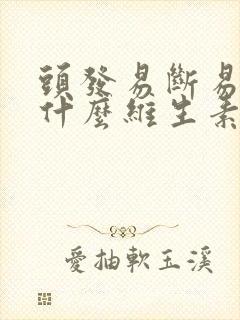 頭發易斷易
什麼維生素
愛抽軟玉溪